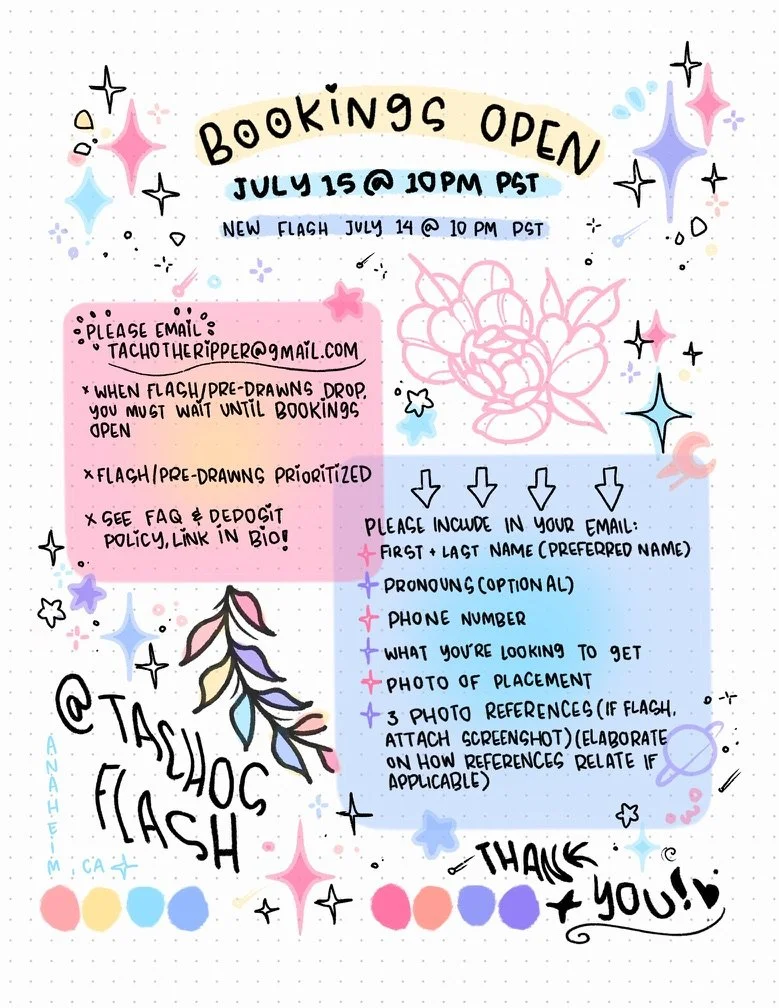 BOOKINGS OPEN
JULY 15 @ 10PM PST
NEW FLASH JULY 14 @ 10 PM PST
PLEASE EMAIL
TACHOTHERIPPER@GMAIL.COM
x WHEN FLASH/PRE-DRAWNS DROP,
YOU MUST WAIT UNTIL BOOKINGS
OPEN
x FLASH/PRE-DRAWNS PRIORITIZED
x SEE FAQ & DEPOSIT
POLICY, LINK IN BIO!
PLEASE INCLUDE IN YOUR EMAIL:
FIRST + LAST NAME (PREFERRED NAME)
PRONOUNS (OPTIONAL)
PHONE NUMBER
WHAT YOU'RE LOOKING TO GET
PHOTO OF PLACEMENT
3 PHOTO REFERENCES (IF FLASH,
ATTACH SCREENSHOT) (ELABORATE
ON HOW REFERENCES RELATE IF
APPLICABLE)
@TACHOS
FLASH
ANAHEIM, CA
THANK
YOU!